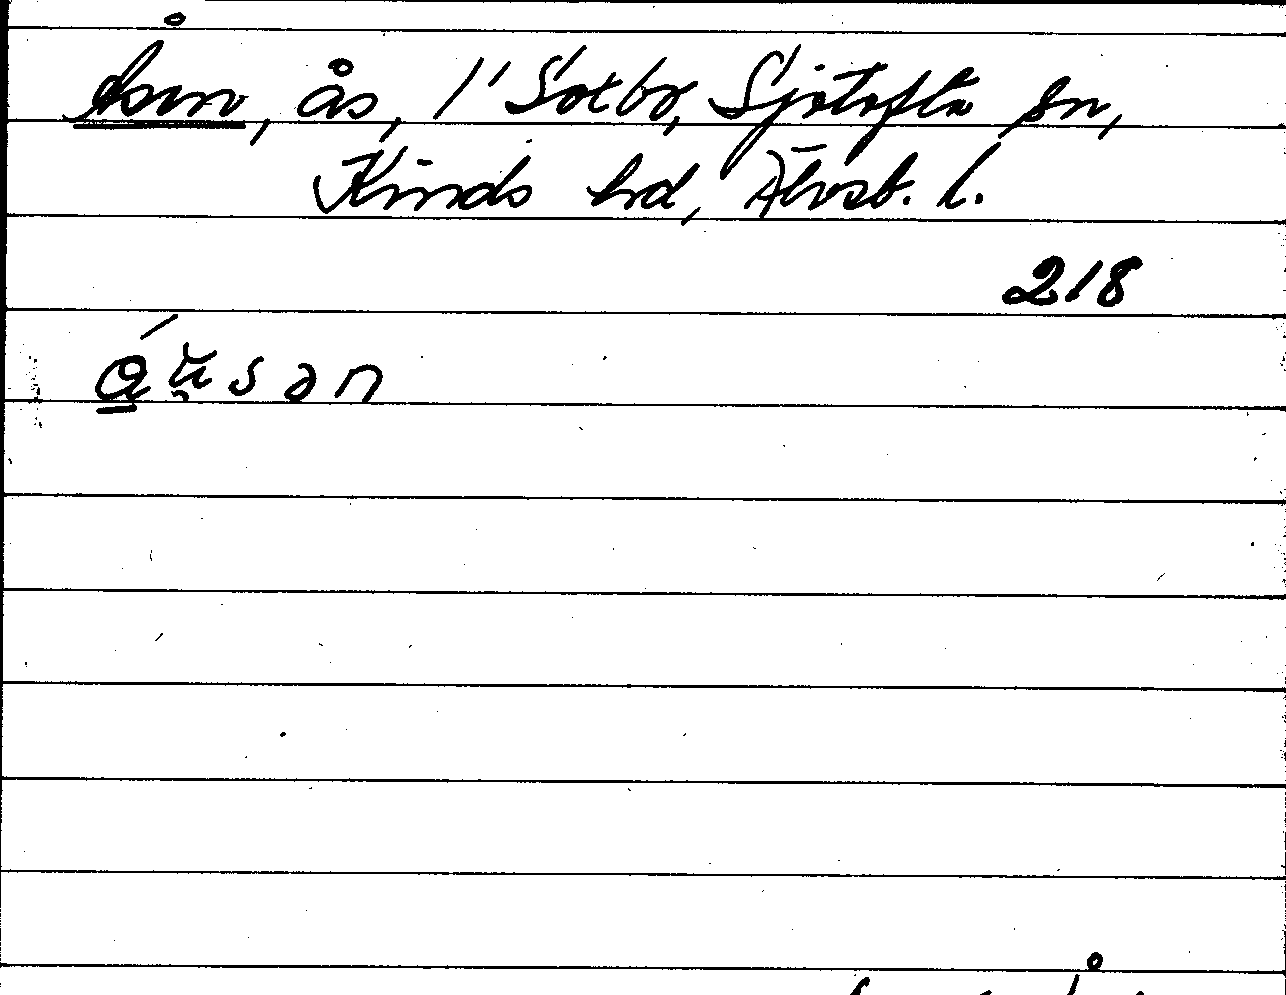 Åsen, ås, 1' Sotbo, Sjötofta sn,
Kinds hd, Älvsb. l.
218